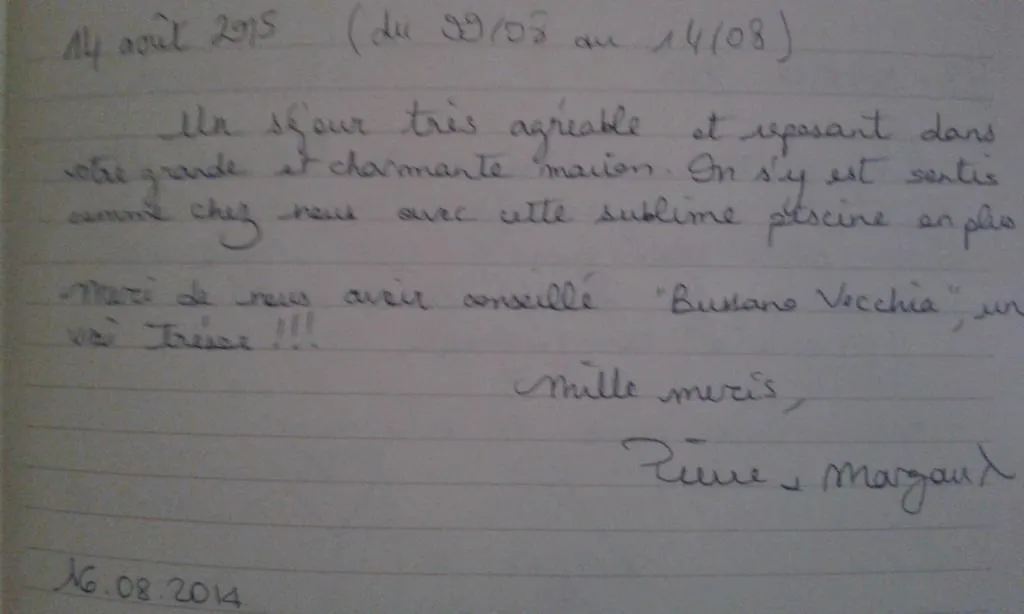 14 août 2015 (du 09/08 au 14/08)
Un séjour très agréable et reposant dans
votre grande et charmante maison. On s'y est sentis
comme chez nous avec cette sublime piscine en plus
Merci de nous avoir conseillé "Bussano Vecchia", un
vrai Trésor !!!
Mille mercis,
Pierre & Margaux
16.08.2014